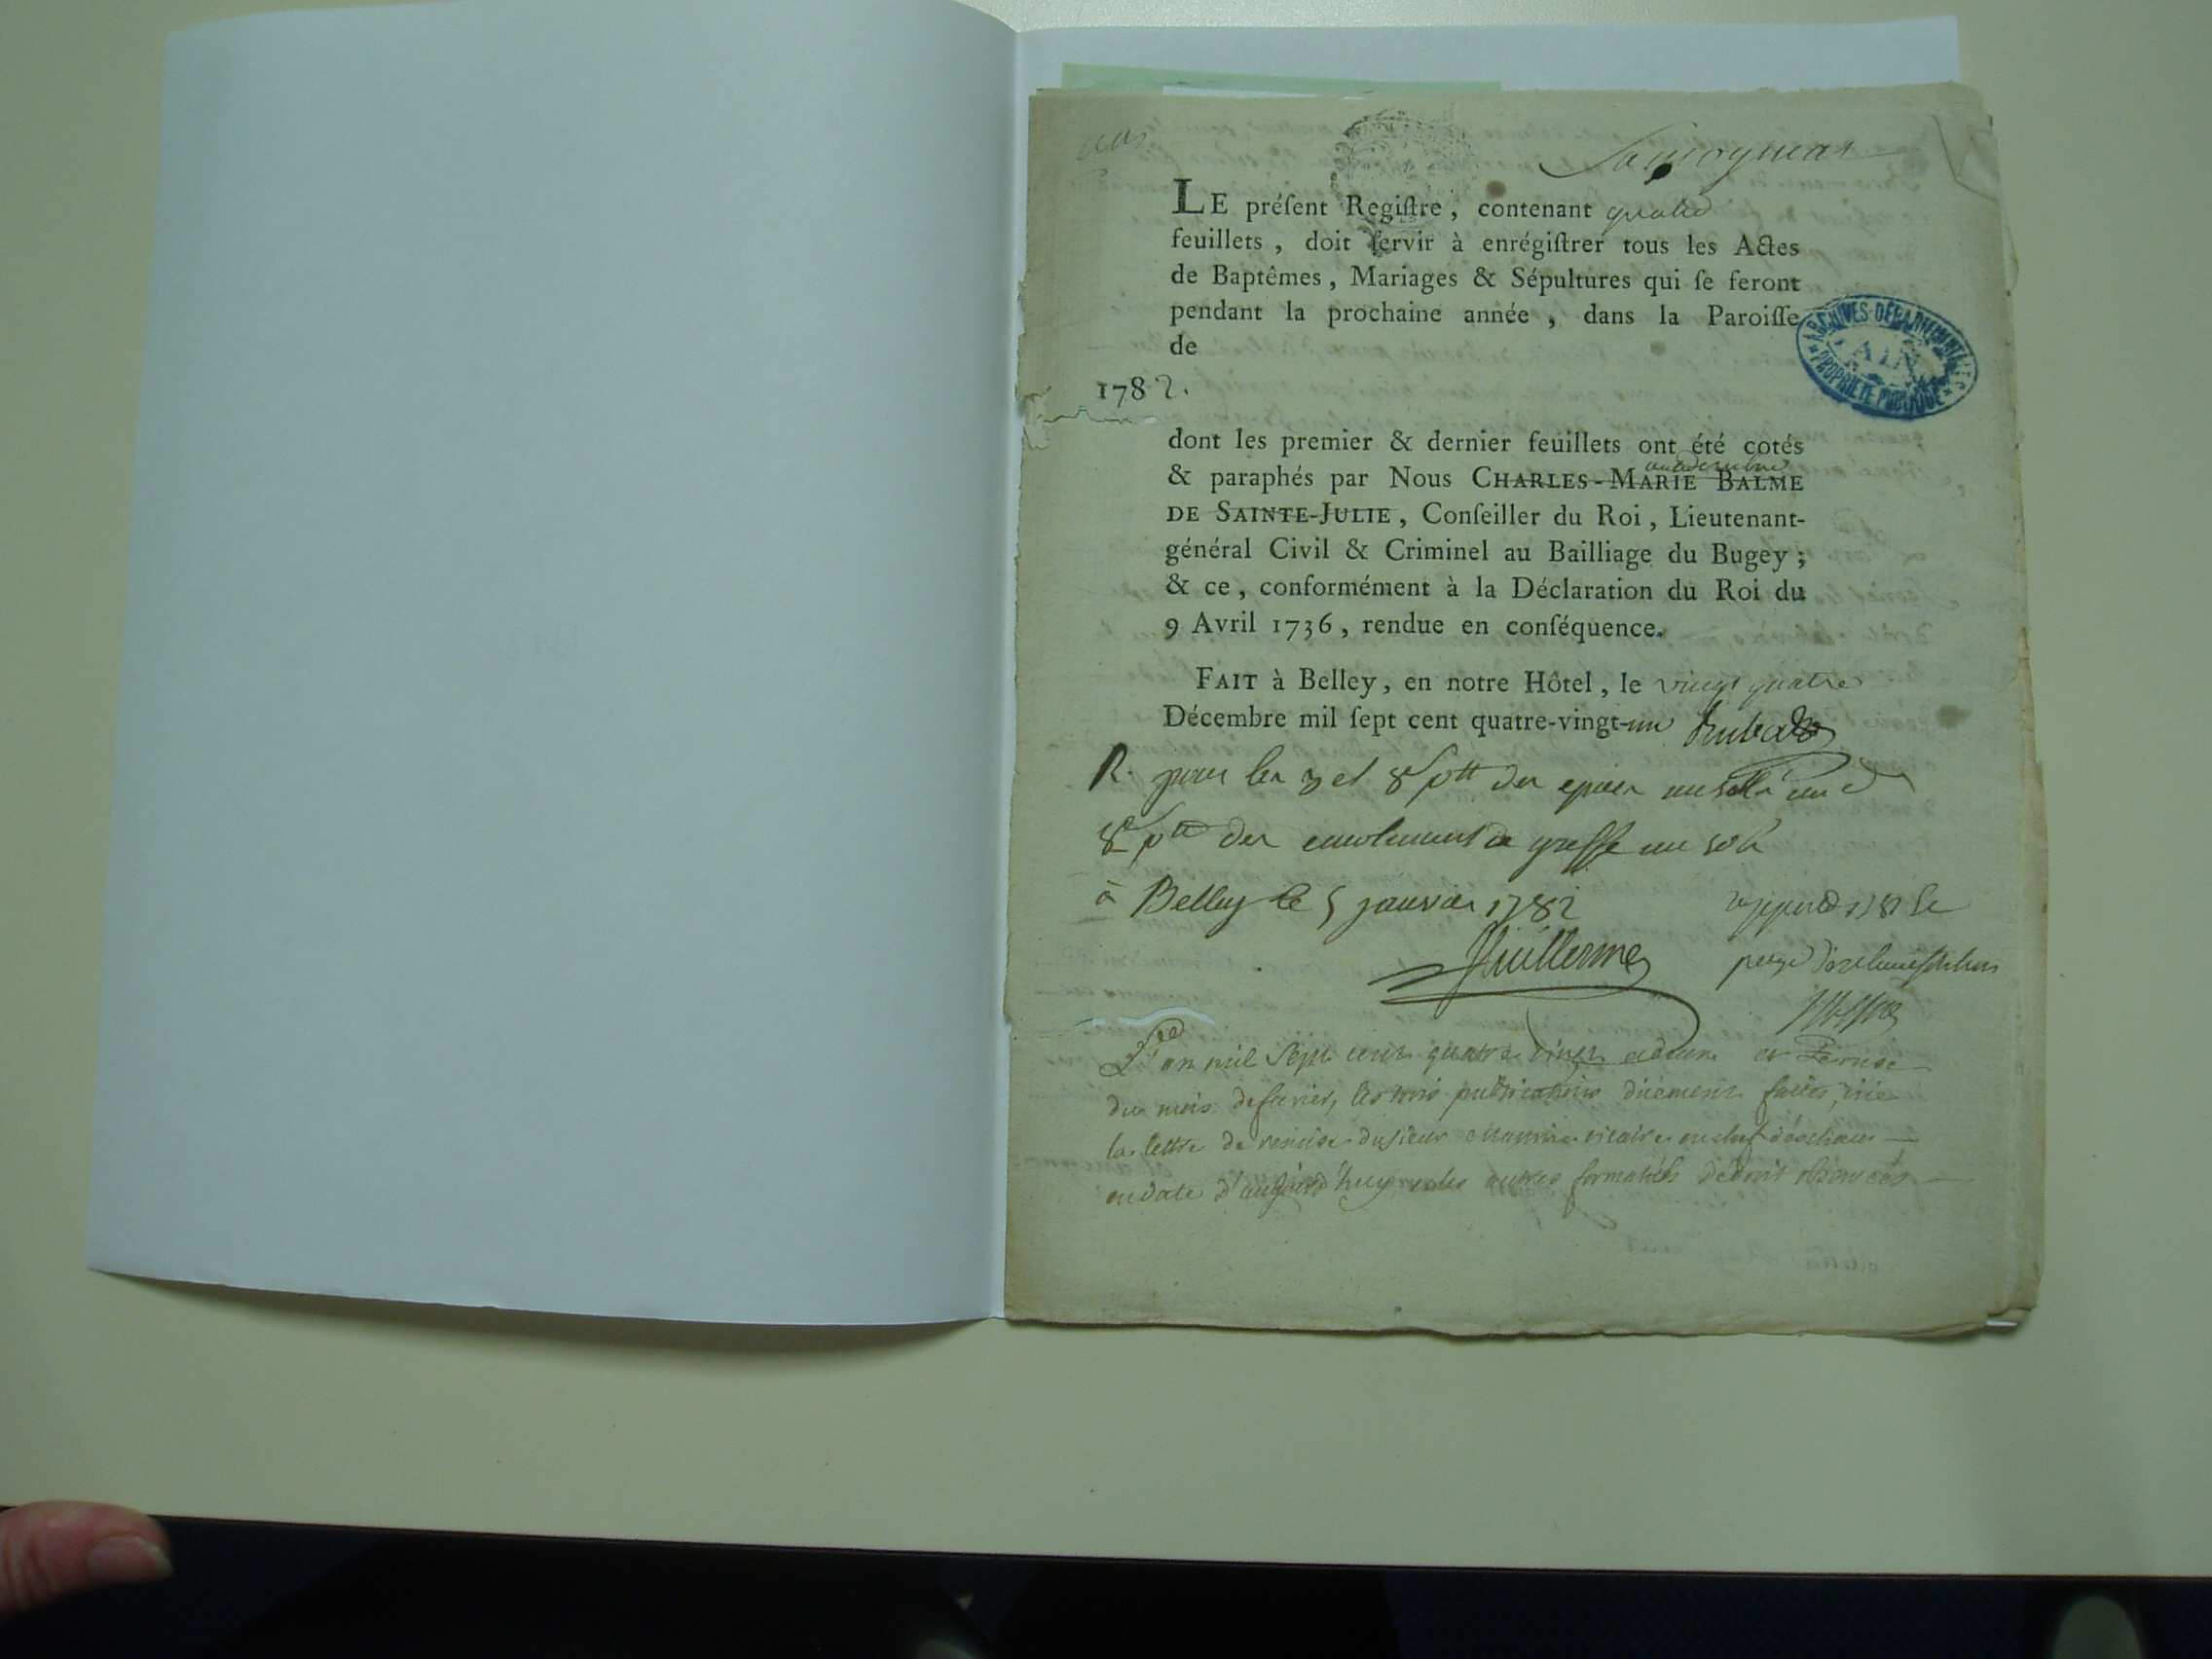 Samognat
LE préſent Regiſtre, contenant quatre
feuillets, doit ſervir à enrégiſtrer tous les Actes
de Baptêmes, Mariages & Sépultures qui ſe feront
pendant la prochaine année, dans la Paroiſſe
de
1782.
ARCHIVES DÉPARTEMENTALES
AIN
PROPRIÉTÉ PUBLIQUE
dont les premier & dernier feuillets ont été cotés
& paraphés par Nous CHARLES-MARIE BALME
DE SAINTE-JULIE, Conſeiller du Roi, Lieutenant-
général Civil & Criminel au Bailliage du Bugey;
& ce, conformément à la Déclaration du Roi du
9 Avril 1736, rendue en conſéquence.
FAIT à Belley, en notre Hôtel, le vingt quatre
Décembre mil ſept cent quatre-vingt-un
R. pour les 3 et 8
8 des emolumens de greffe un sol
à Belley le 5 janvier 1782
Guillerme
L'an mil Sept cent quatre vingt deux et
du mois de fevrier, les trois publications düement faites, vüe
la lettre de remise du sieur vicaire en chef
en date d'aujourd'huy autres formalités de droit observées